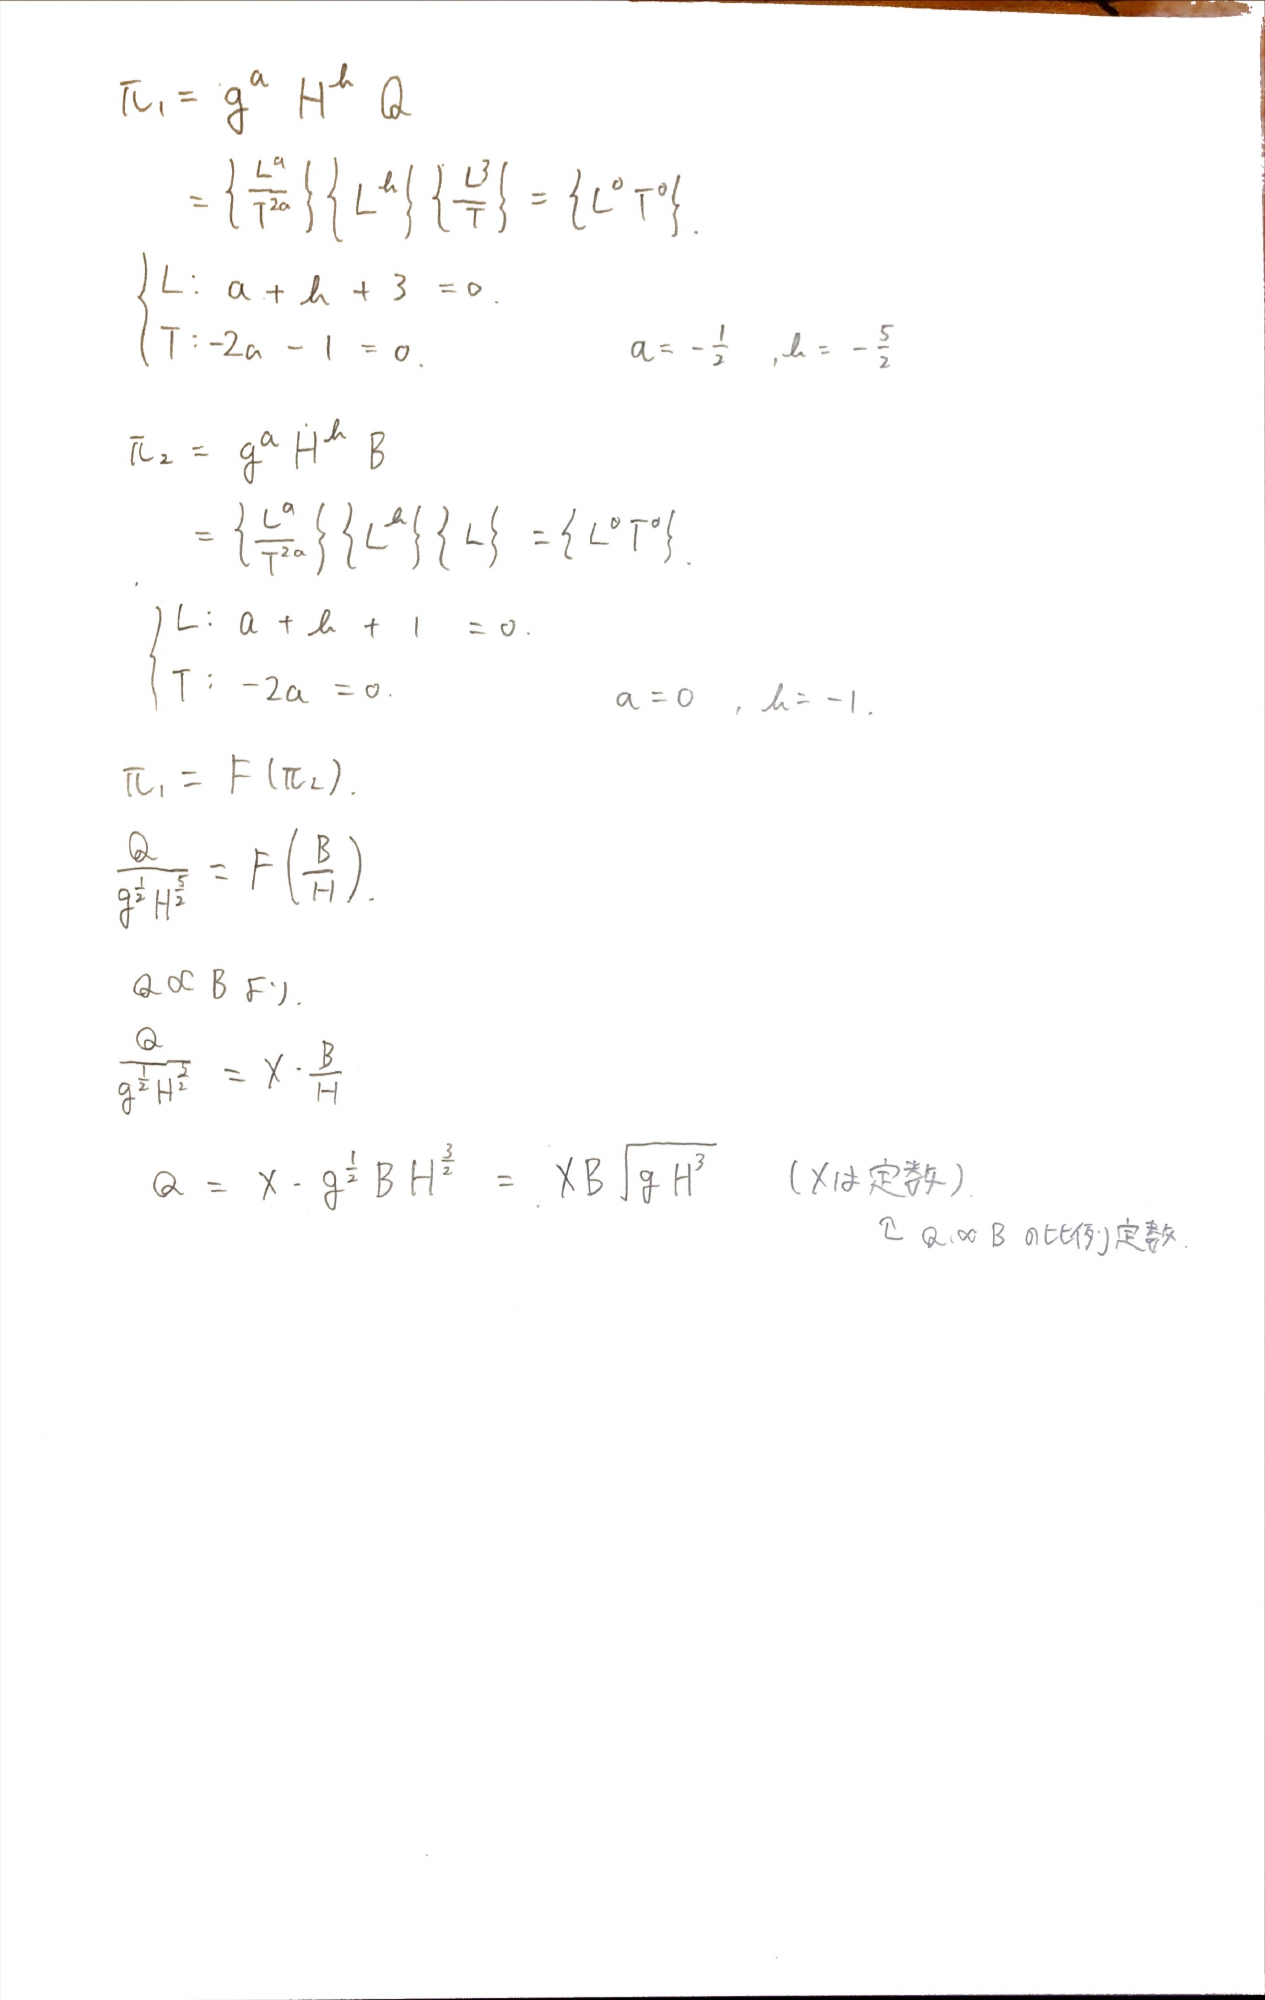 π₁ = g^a H^h Q
= {L^a/T^2a}{L^h}{L³/T} = {L⁰T⁰}.
L: a + h + 3 = 0.
T: -2a - 1 = 0. a = -1/2 , h = -5/2
π₂ = g^a H^h B
= {L^a/T^2a}{L^h}{L} = {L⁰T⁰}.
L: a + h + 1 = 0.
T: -2a = 0. a = 0 , h = -1.
π₁ = F(π₂).
Q/(g^(1/2) H^(5/2)) = F(B/H).
Q∝B より.
Q/(g^(1/2) H^(5/2)) = X・B/H
Q = X・g^(1/2) B H^(3/2) = XB√(gH³) (Xは定数).
↑ Q∝B の比例定数.